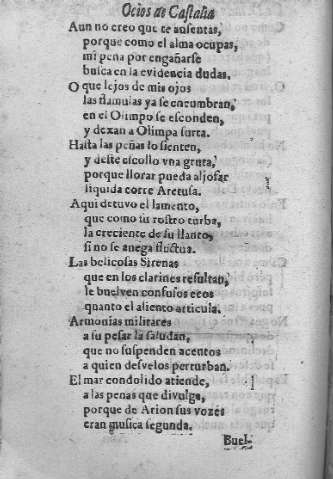 Ocios de Castalia
Aun no creo que te ausentas,
porque como el alma ocupas,
mi pena por engañarse
busca en la evidencia dudas.
O que lejos de mis ojos
las flamulas ya se encumbran,
en el Olimpo se esconden,
y dexan a Olimpa surta.
Hasta las peñas lo sienten,
y deste escollo vna gruta,
porque llorar pueda aljofar
liquida corre Aretusa.
Aqui detuvo el lamento,
que como su rostro turba,
la creciente de su llanto,
si no se anega fluctua.
Las belicosas Sirenas
que en los clarines resultan,
le buelven confusos ecos
quanto el aliento articula.
Armonias militares
a su pesar la saludan,
que no suspenden acentos
a quien desvelos perturban.
El mar condolido atiende,
a las penas que divulga,
porque de Arion sus vozes
eran musica segunda.
Buel-